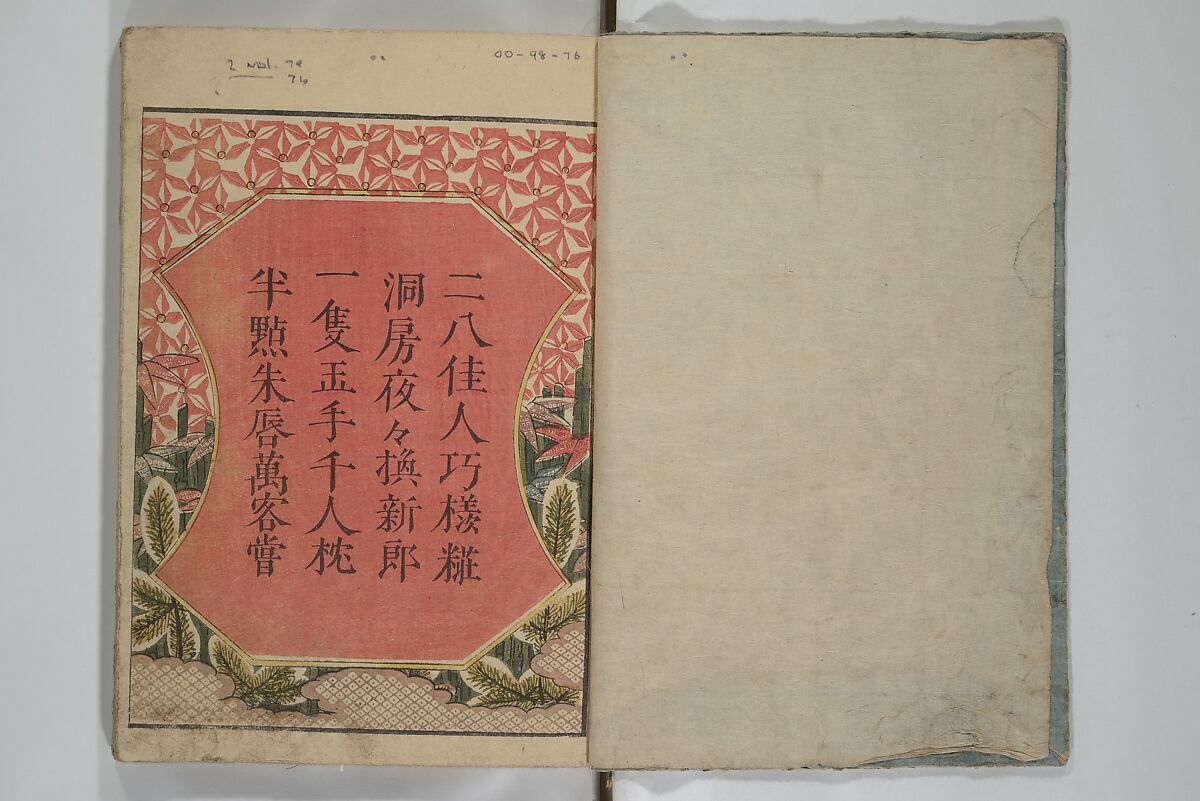 00-98-76
二八佳人巧樣糚
洞房夜々換新郎
一隻玉手千人枕
半點朱唇萬客甞